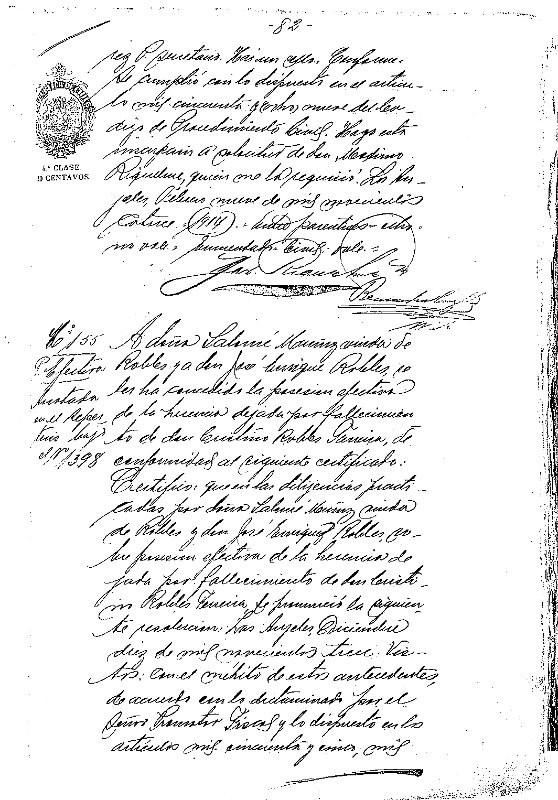 -82-
secretario. Hai un sello. Conforme.
Se cumplió con lo dispuesto en el artícu-
lo mil cincuenta nueve del Có-
digo de Procedimiento Civil. Hago esta
a solicitud de don Maximo
Riquelme, quien me la requirió. Los An-
jeles, nueve de mil novecientos
catorce. (1914) - Entre paréntesis -
no vale. Enmendado - Civil - vale -
4.ª CLASE
CENTAVOS.
No 155
P. Efectiva
Anotada
en el Reper
torio bajo
el No 1398
A doña Salomé Muñoz viuda de
Robles y a don José Enrique Robles, se
les ha concedido la posesion efectiva
de la herencia dejada por fallecimien
to de don Robles, de
conformidad al siguiente certificado:
Certifico: que en las diligencias practi-
cadas por doña Salomé Muñoz viuda
de Robles y don José Enrique Robles so-
bre posesion efectiva de la herencia de-
jada por fallecimiento de don
Robles, se pronunció la siguien-
te resolucion: Los Anjeles Diciembre
diez de mil novecientos trece. Vis-
tos: con el mérito de estos antecedentes,
de acuerdo con lo dictaminado por el
Señor Promotor Fiscal y lo dispuesto en los
artículos mil cincuenta y cinco, mil